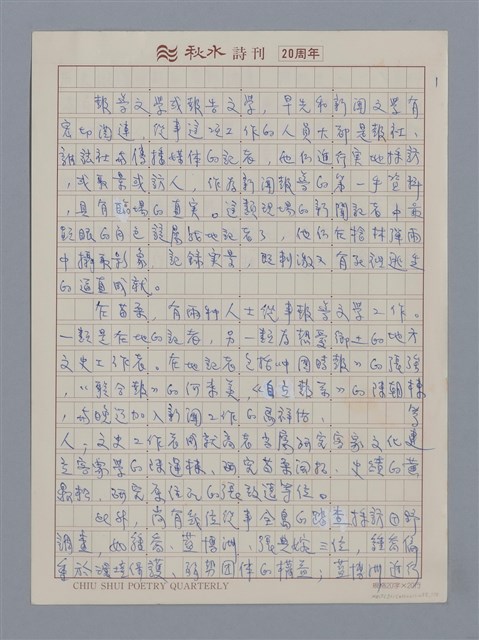 秋水詩刊 20周年
1
報導文學或報告文學,早先和新聞文學有
密切關連,從事這項工作的人員大都是報社、
雜誌社與傳播媒体的記者,他們進行實地採訪
,或取景或訪人,作為新聞報導的第一手資料
,具有臨場的真實。這類現場的新聞記者中最
耀眼的自是該屬戰地記者了,他們在槍林彈雨
中攝取影象、記錄實景,既刺激又有
的逼真成就。
在苗栗,有兩種人士從事報導文學工作。
一類是在地的記者,另一類為熱愛鄉土的地方
文史工作者。在地記者包括《中國時報》的張強
,《聯合報》的何來美,《自立報系》的陳朝棟
,與晚近加入新聞工作的馮祥佑、等
人;文史工作者則就當屬研究客家文化建
立客家學的陳運棟、研究苗栗開拓、史蹟的黃
鼎松、研究 的張致遠等位。
此外,尚有幾位從事全島的踏查採訪田野
調查,如鍾喬、藍博洲、張 三位,鍾喬偏
重於環境保護、弱勢團体的權益;藍博洲近
CHIU SHUI POETRY QUARTERLY